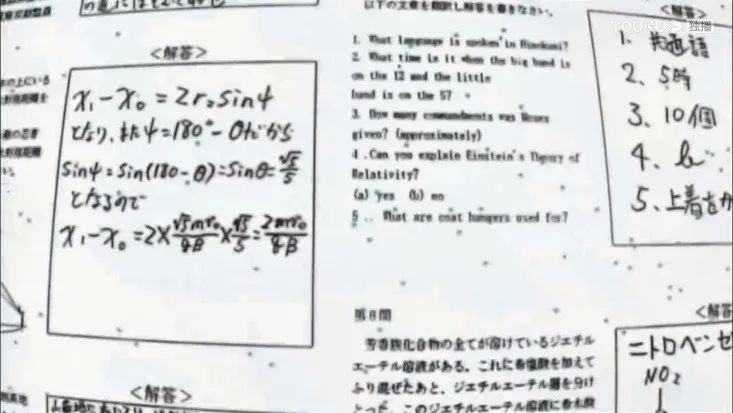 <解答>
x₁-x₀=2r₂sinψ
となり、またψ=180°-θだから
sinψ=sin(180-θ)=sinθ=√5/5
となるので
x₁-x₀=2×√5mv₀/qB×√5/5=2mv₀/qB
<解答>
以下の文章を翻訳し解答を書きなさい。
1. What language is spoken in
2. What time is it when the big hand is
on the 12 and the little
hand is on the 5?
3. How many commandments was Moses
given? (approximately)
4 .Can you explain Einstein's Theory of
Relativity?
(a) yes (b) no
5 .. What are coat hangers used for?
第6問
芳香族化合物の全てが溶けているジエチル
エーテル溶液がある。これに希塩酸を加えて
ふり混ぜたあと、ジエチルエーテル層を分け
とった。このジエチルエーテル溶液に
YOUKU 独播
<解答>
1. 共通語
2. 5時
3. 10個
4. b
5. 上着を
<解答
ニトロベンゼ
NO₂